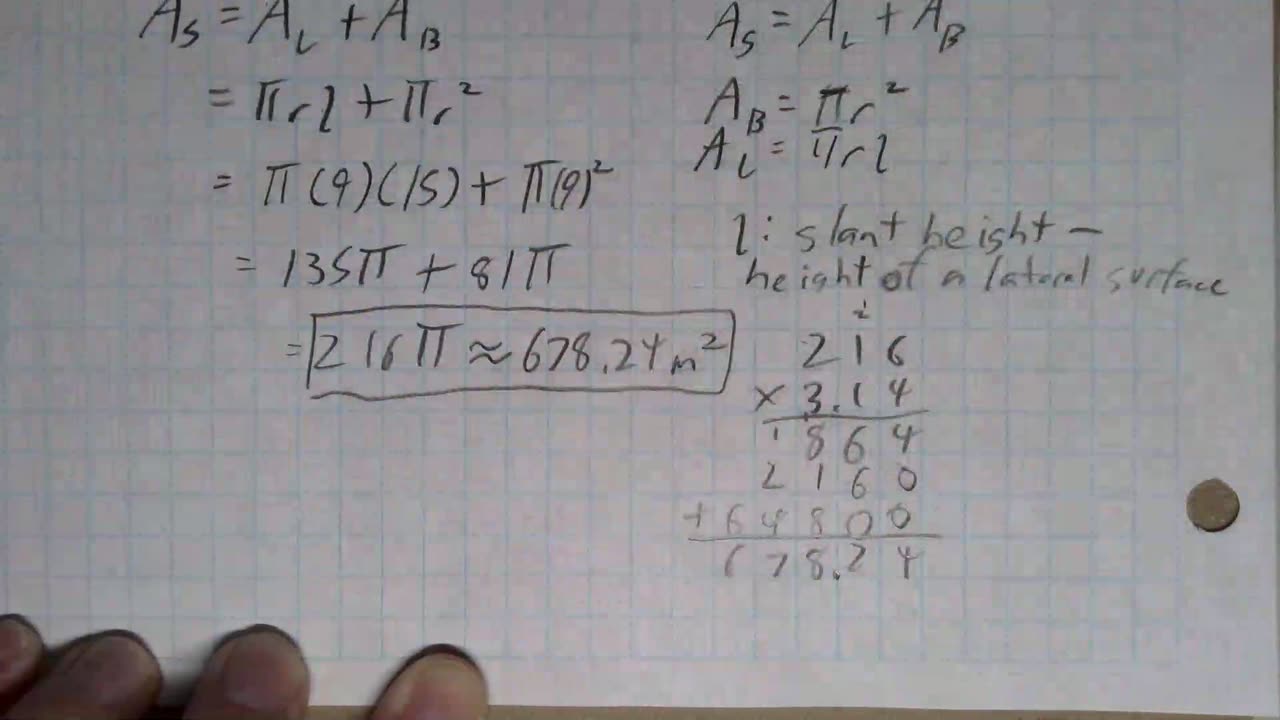 A_S = A_L + A_B
= πrl + πr²
= π(9)(15) + π(9)²
= 135π + 81π
= 216π ≈ 678.24 m²
A_S = A_L + A_B
A_B = πr²
A_L = πrl
l: slant height –
height of a lateral surface
2
216
× 3.14
1864
2160
+ 64800
678.24